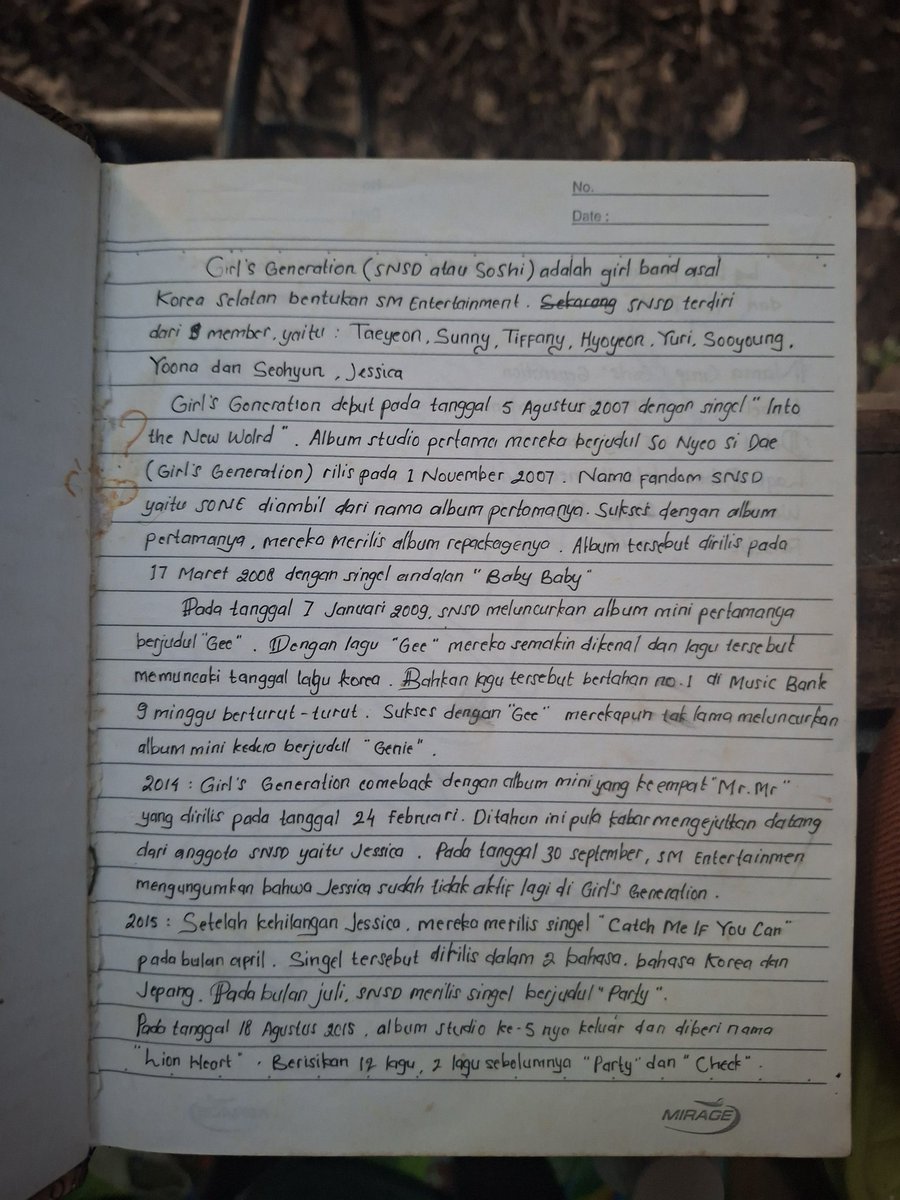 No.
Date :
Girl's Generation (SNSD atau SoShi) adalah girl band asal
Korea Selatan bentukan SM Entertainment. Sekarang SNSD terdiri
dari 8 member, yaitu : Taeyeon, Sunny, Tiffany, Hyoyeon, Yuri, Sooyoung,
Yoona dan Seohyun, Jessica
Girl's Generation debut pada tanggal 5 Agustus 2007 dengan singel "Into
the New Wolrd". Album studio pertama mereka berjudul So Nyeo Si Dae
(Girl's Generation) rilis pada 1 November 2007. Nama fandom SNSD
yaitu SONE diambil dari nama album pertamanya. Sukses dengan album
pertamanya, mereka merilis album repackagenya. Album tersebut dirilis pada
17 Maret 2008 dengan singel andalan "Baby Baby"
Pada tanggal 7 Januari 2009, SNSD meluncurkan album mini pertamanya
berjudul "Gee". Dengan lagu "Gee" mereka semakin dikenal dan lagu tersebut
memuncaki tanggal lagu korea. Bahkan lagu tersebut bertahan no.1 di Music Bank
9 minggu berturut-turut. Sukses dengan "Gee" merekapun tak lama meluncurkan
album mini kedua berjudul "Genie".
2014 : Girl's Generation comeback dengan album mini yang ke empat "Mr. Mr"
yang dirilis pada tanggal 24 februari. Ditahun ini pula kabar mengejutkan datang
dari anggota SNSD yaitu Jessica. Pada tanggal 30 september, SM Entertainmen
mengungumkan bahwa Jessica sudah tidak aktif lagi di Girl's Generation.
2015 : Setelah kehilangan Jessica, mereka merilis singel "Catch Me If You Can"
pada bulan april. Singel tersebut dirilis dalam 2 bahasa, bahasa Korea dan
Jepang. Pada bulan juli, SNSD merilis singel berjudul "Party".
Pada tanggal 18 Agustus 2015, album studio ke-5 nya keluar dan diberi nama
"Lion Heart". Berisikan 12 lagu, 2 lagu sebelumnya "Party" dan "Check".
MIRAGE